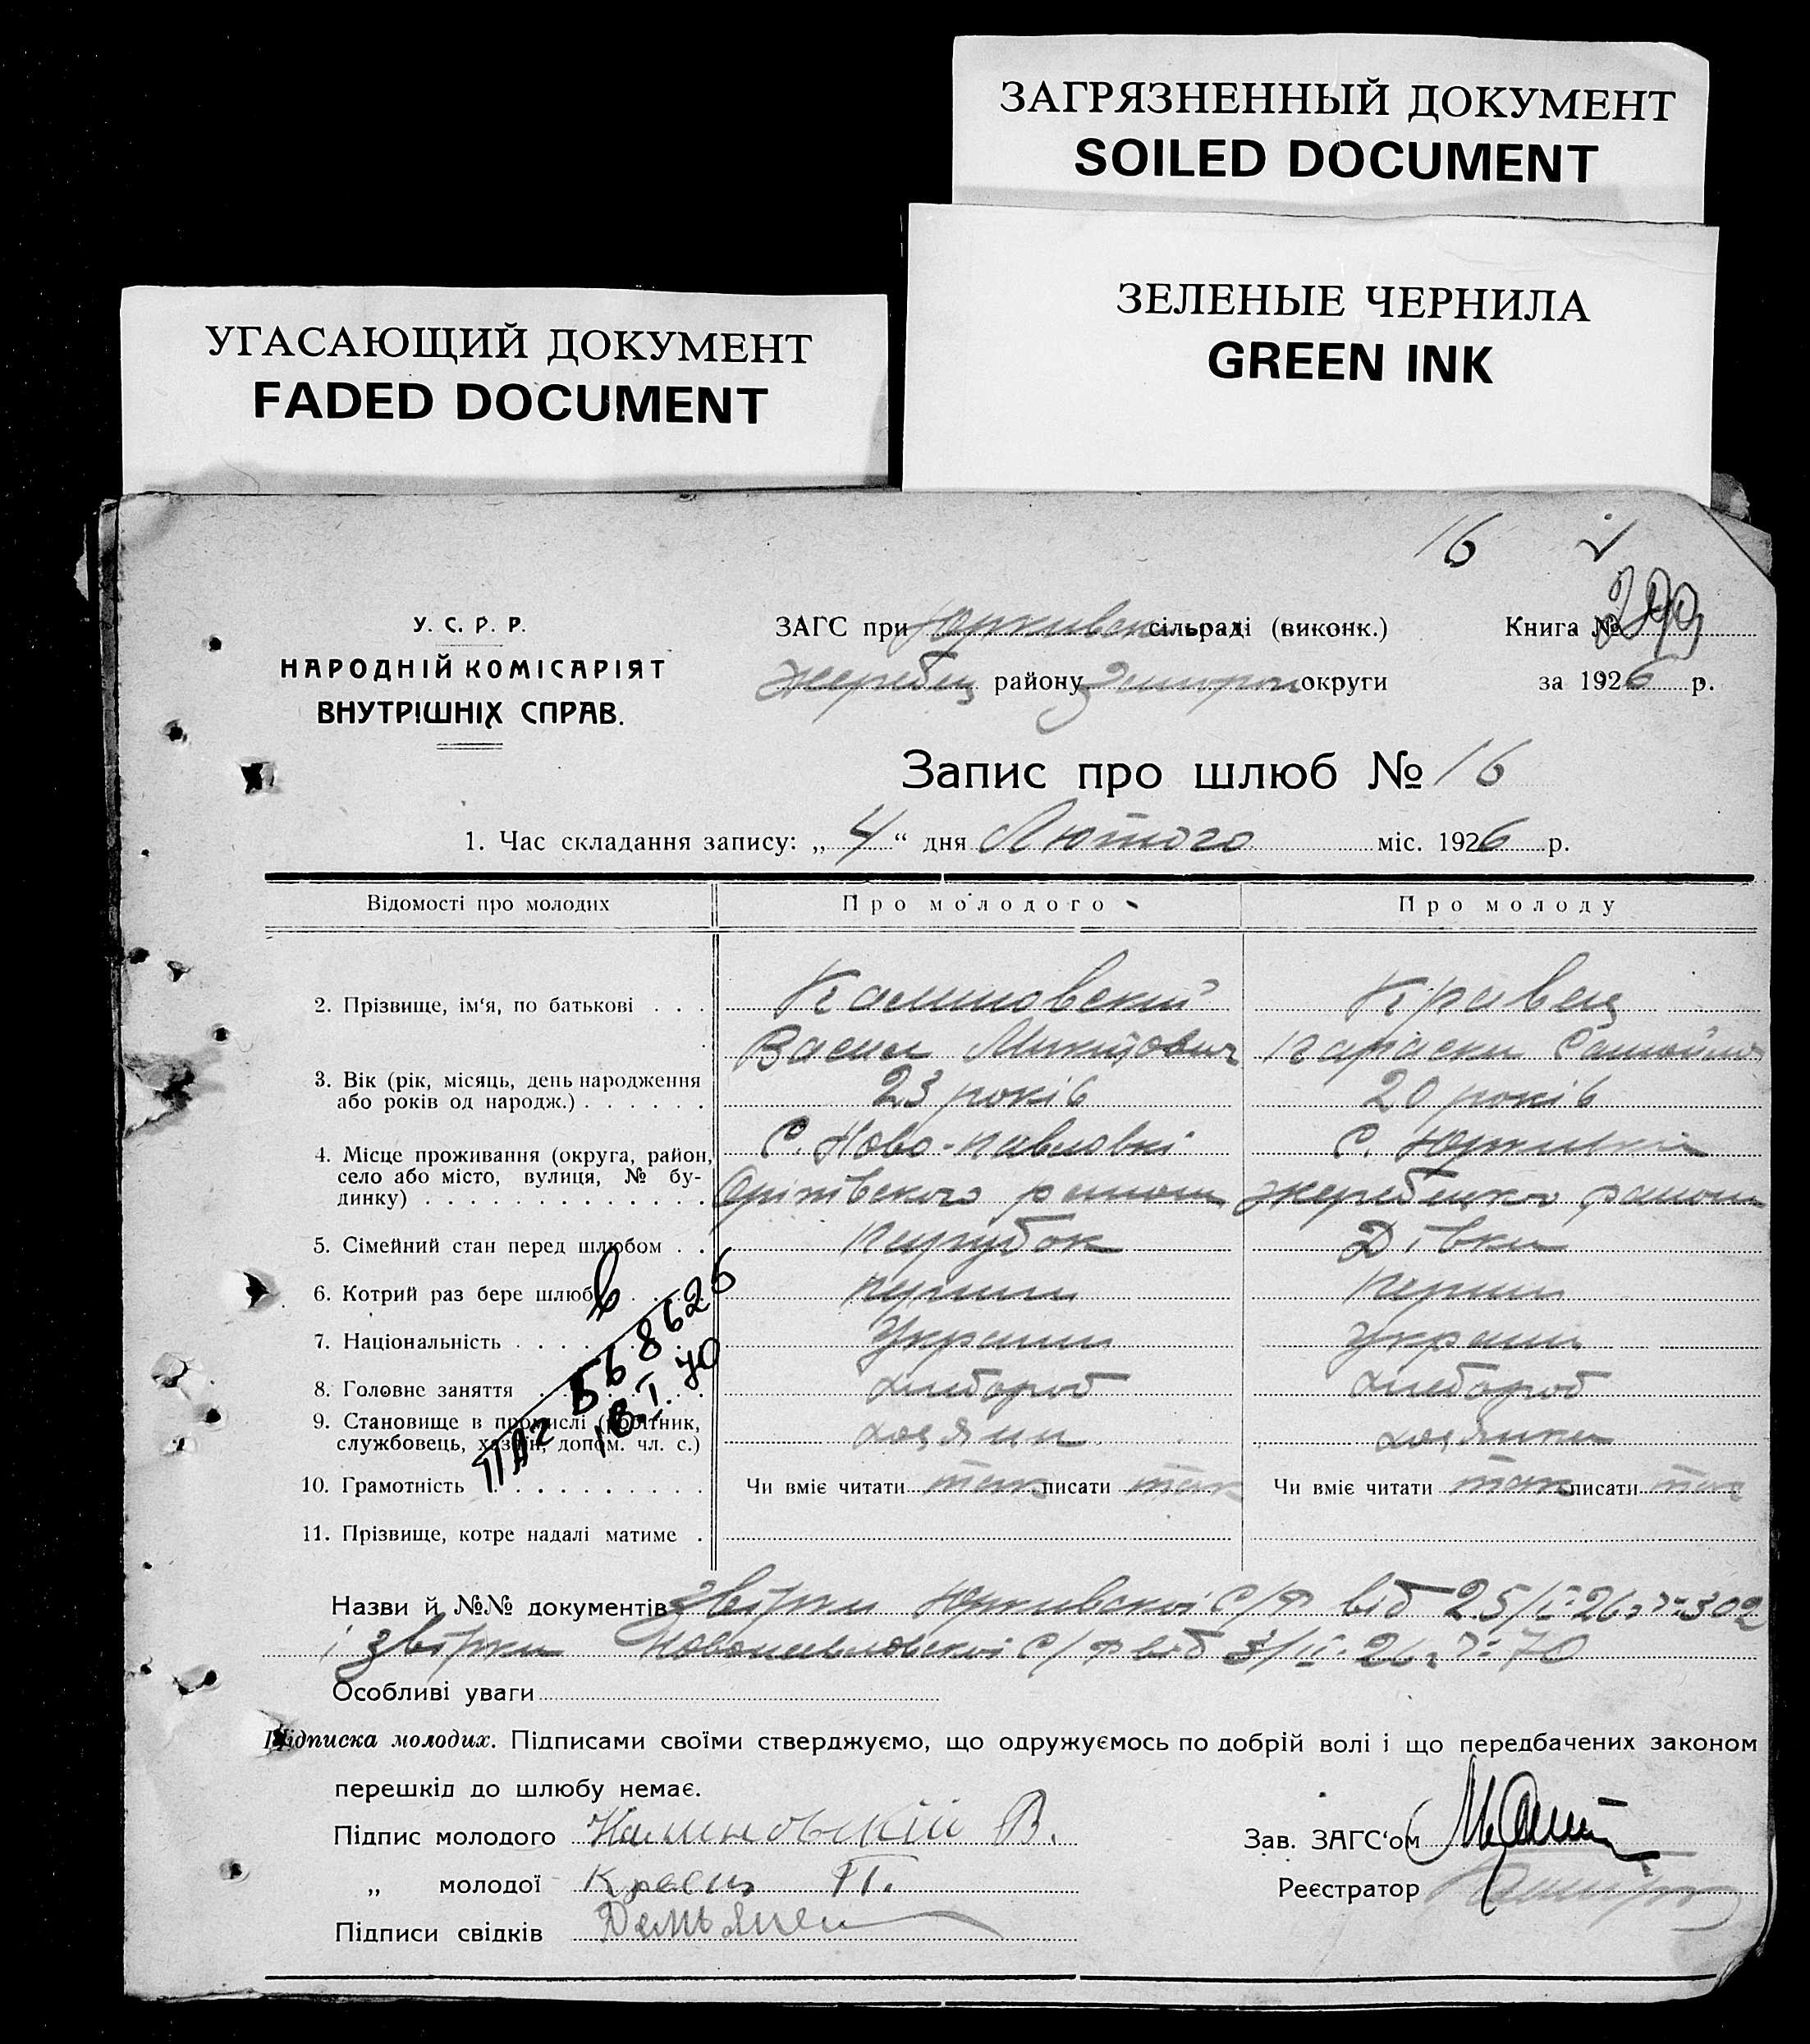 ЗАГРЯЗНЕННЫЙ ДОКУМЕНТ
SOILED DOCUMENT
ЗЕЛЕНЫЕ ЧЕРНИЛА
GREEN INK
УГАСАЮЩИЙ ДОКУМЕНТ
FADED DOCUMENT
16
У. С. Р. Р.
НАРОДНІЙ КОМІСАРІЯТ
ВНУТРІШНІХ СПРАВ.
ЗАГС при Юрківск сільраді (виконк.)
Жеребец району Запорож округи
Книга №
за 1926 р.
Запис про шлюб № 16
1. Час складання запису: „ 4 “ дня Лютого міс. 1926 р.
Відомості про молодих Про молодого Про молоду
2. Прізвище, ім‘я, по батькові . . . Калиновский Кравец
Васил Микитович Параска Самойлов
3. Вік (рік, місяць, день народження 23 років 20 років
або років од народж.) . . . . . .
4. Місце проживання (округа, район, С. Ново-Павловкі С. Юрківка
село або місто, вулиця, № бу- Оріхівского району Жеребецко району
динку) . . . . . . . . . . . . .
5. Сімейний стан перед шлюбом . . Парубок Дівка
6. Котрий раз бере шлюб . . . . перши перши
7. Національність . . . . . . . Украин Украин
8. Головне заняття . . . . . . . хлебороб хлебороб
9. Становище в промислі (робітник, хозяин хозяйка
службовець, хазяїн, допом. чл. с.)
10. Грамотність . . . . . . . . . Чи вміє читати так писати так Чи вміє читати так писати так
11. Прізвище, котре надалі матиме .
ПАг 568626
18.I.70
Назви й №№ документів звірки Юркивскоі С/Р від 25/I-26 г № 302
і звірки Новопавловскоі С/Р від 3/II-26 г № 70
Особливі уваги
Підписка молодих. Підписами своїми стверджуємо, що одружуємось по добрій волі і що передбачених законом
перешкід до шлюбу немає.
Підпис молодого Калиновский В.
„ молодої Кравец П.
Підписи свідків Демьянен
Зав. ЗАГС‘ом
Реєстратор